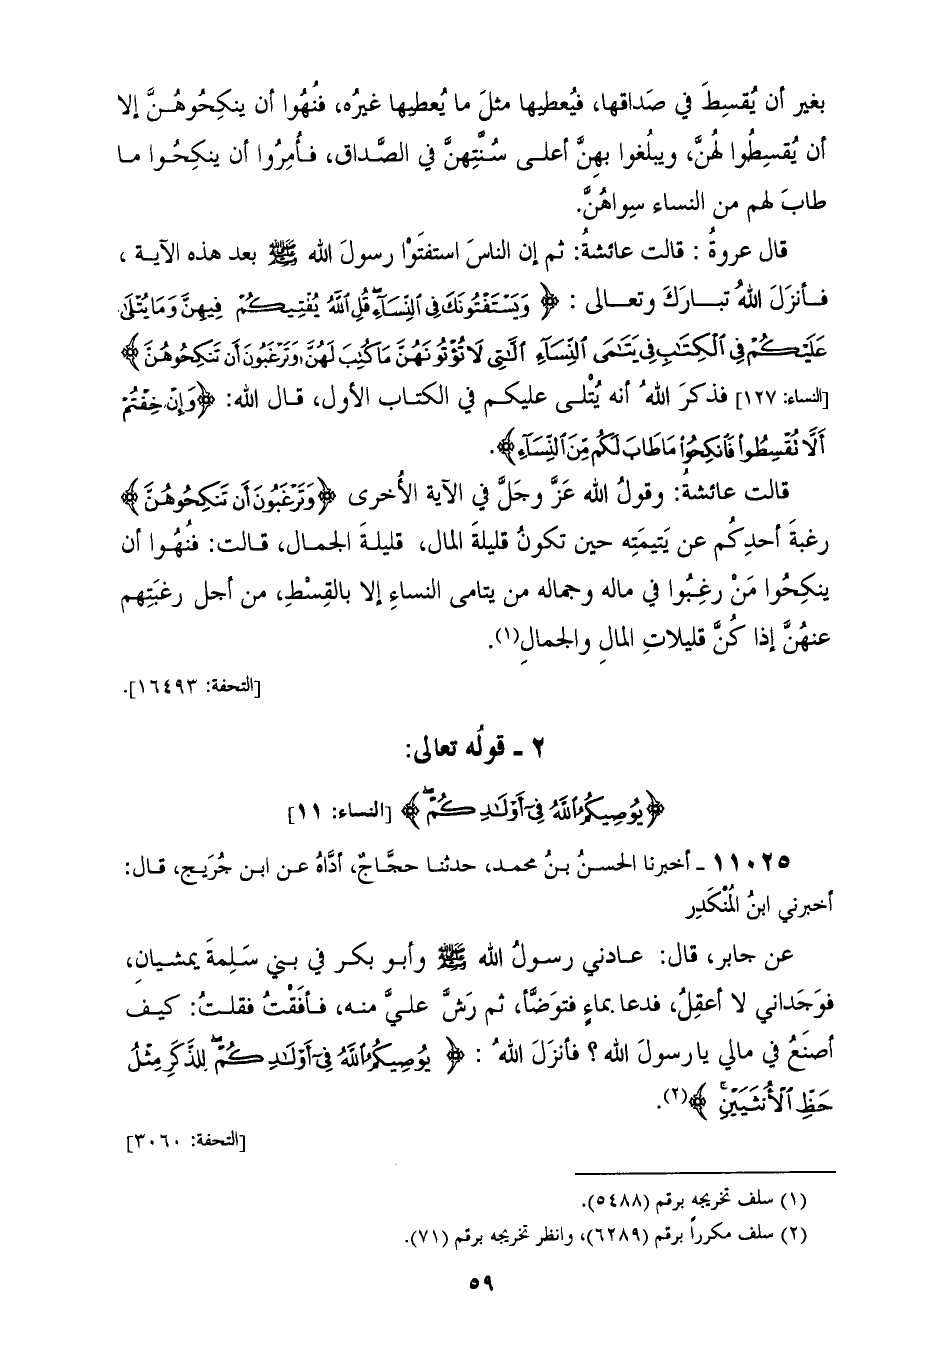 بغير أن يُقسِطَ في صَداقها، فيُعطيها مثلَ ما يُعطيها غيرُه، فنُهُوا أن ينكِحُوهُنَّ إلا
أن يُقسِطُوا لهُنَّ، ويبلُغوا بهِنَّ أعلى سُنَّتِهنَّ في الصَّداق، فأُمِرُوا أن ينكِحُوا ما
طابَ لهم من النساء سِواهُنَّ.
قال عروةُ : قالت عائشةُ: ثم إن الناسَ استفتَوْا رسولَ الله ﷺ بعد هذه الآية ،
فأنزَلَ اللهُ تباركَ وتعالى : ﴿ وَيَسْتَفْتُونَكَ فِى ٱلنِّسَآءِۖ قُلِ ٱللَّهُ يُفْتِيكُمْ فِيهِنَّ وَمَا يُتْلَىٰ
عَلَيْكُمْ فِى ٱلْكِتَٰبِ فِى يَتَٰمَى ٱلنِّسَآءِ ٱلَّٰتِى لَا تُؤْتُونَهُنَّ مَا كُتِبَ لَهُنَّ وَتَرْغَبُونَ أَن تَنكِحُوهُنَّ ﴾
[النساء: ١٢٧] فذكرَ اللهُ أنه يُتْلى عليكم في الكتاب الأول، قال الله: ﴿وَإِنْ خِفْتُمْ
أَلَّا تُقْسِطُوا۟ فَٱنكِحُوا۟ مَا طَابَ لَكُم مِّنَ ٱلنِّسَآءِ﴾.
قالت عائشةُ: وقولُ الله عَزَّ وجَلَّ في الآية الأُخرى ﴿وَتَرْغَبُونَ أَن تَنكِحُوهُنَّ﴾
رغبةَ أحدِكُم عن يَتيمَتِه حين تكونُ قليلةَ المال، قليلةَ الجمال، قالت: فنُهُوا أن
ينكِحُوا مَنْ رغِبُوا في ماله وجماله من يتامى النساءِ إلا بالقِسْطِ، من أجل رغبَتِهم
عنهُنَّ إذا كُنَّ قليلاتِ المالِ والجمالِ(١).
[التحفة: ١٦٤٩٣].
٢ - قولُه تعالى:
﴿يُوصِيكُمُ ٱللَّهُ فِىٓ أَوْلَٰدِكُمْۖ﴾ [النساء: ١١]
١١٠٢٥ - أخبرنا الحسنُ بنُ محمد، حدثنا حجَّاجٌ، أدَّاهُ عن ابن جُرَيج، قال:
أخبرني ابنُ المُنْكَدِر
عن جابر، قال: عادني رسولُ الله ﷺ وأبو بكر في بني سَلِمةَ يمشيانِ،
فوَجَداني لا أعقِلُ، فدعا بماءٍ فتوَضَّأ، ثم رَشَّ عليَّ منه، فأفَقْتُ فقلتُ: كيف
أصنَعُ في مالي يا رسولَ الله ؟ فأنزَلَ اللهُ : ﴿ يُوصِيكُمُ ٱللَّهُ فِىٓ أَوْلَٰدِكُمْۖ لِلذَّكَرِ مِثْلُ
حَظِّ ٱلْأُنثَيَيْنِۚ ﴾(٢).
[التحفة: ٣٠٦٠]
(١) سلف تخريجه برقم (٥٤٨٨).
(٢) سلف مكرراً برقم (٦٢٨٩)، وانظر تخريجه برقم (٧١).
٥٩